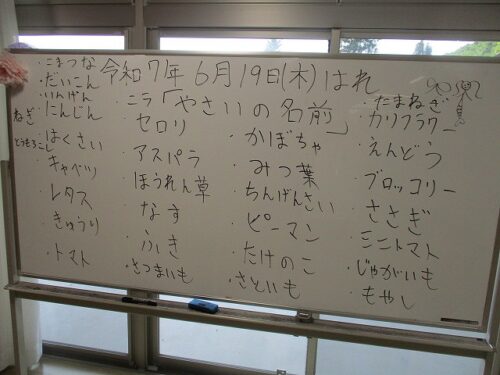 令和7年 6月19日(木) はれ
「やさいの名前」
・こまつな
・だいこん
・いんげん
・にんじん
ねぎ
・はくさい
とうもろこし
・キャベツ
・レタス
・きゅうり
・トマト
・ニラ
・セロリ
・アスパラ
・ほうれん草
・なす
・ふき
・さつまいも
・かぼちゃ
・みつ葉
・ちんげんさい
・ピーマン
・たけのこ
・さといも
・たまねぎ
・カリフラワー
・えんどう
・ブロッコリー
・ささぎ
・ミニトマト
・じゃがいも
・もやし